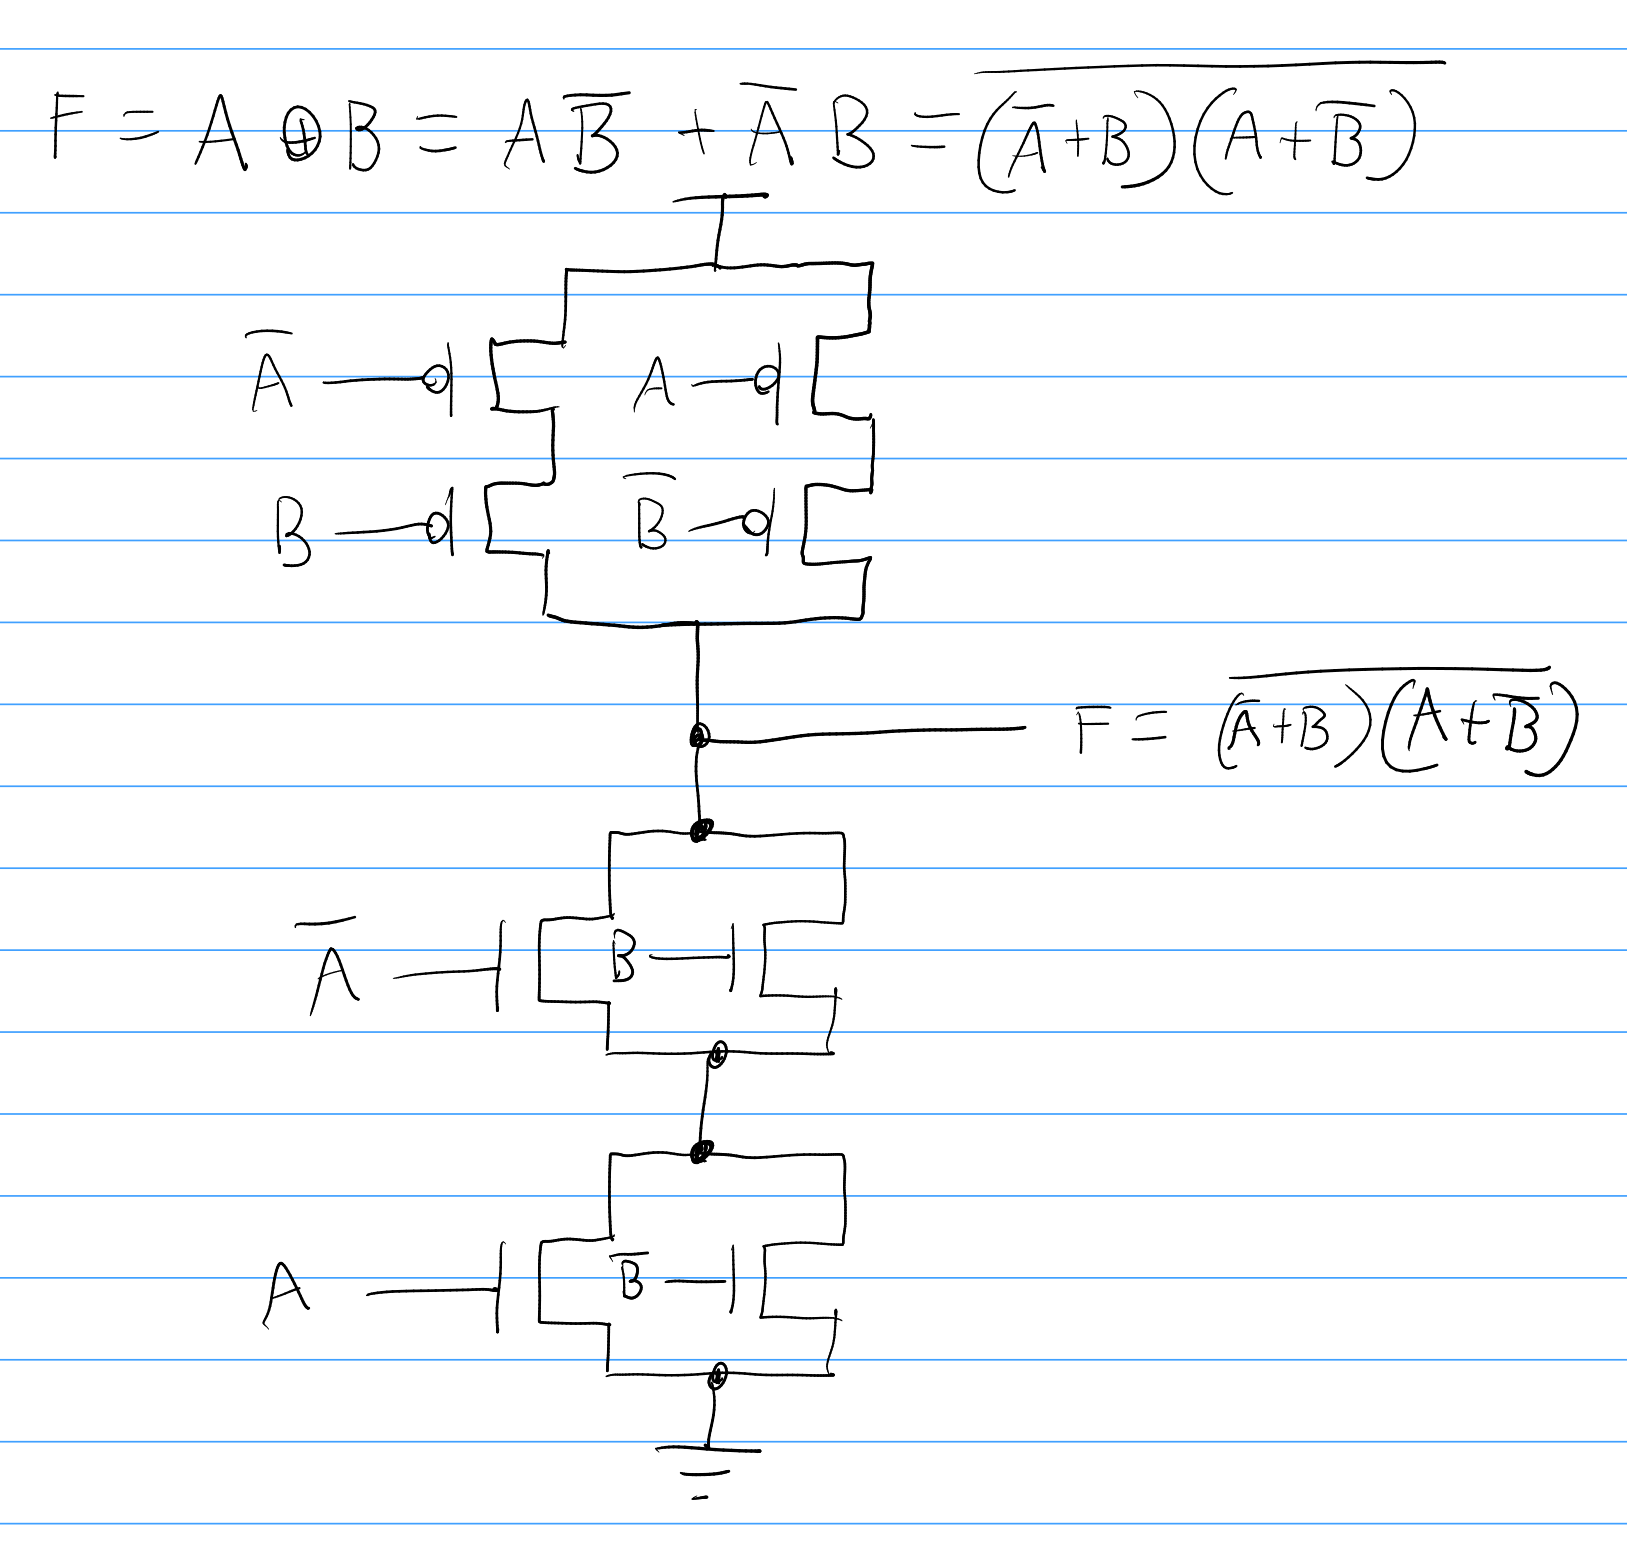 F = A ⊕ B = A B̅ + A̅ B = \overline{(A̅+B)(A+B̅)}
A̅ A
B B̅
F = \overline{(A̅+B)(A+B̅)}
A̅ B
A B̅